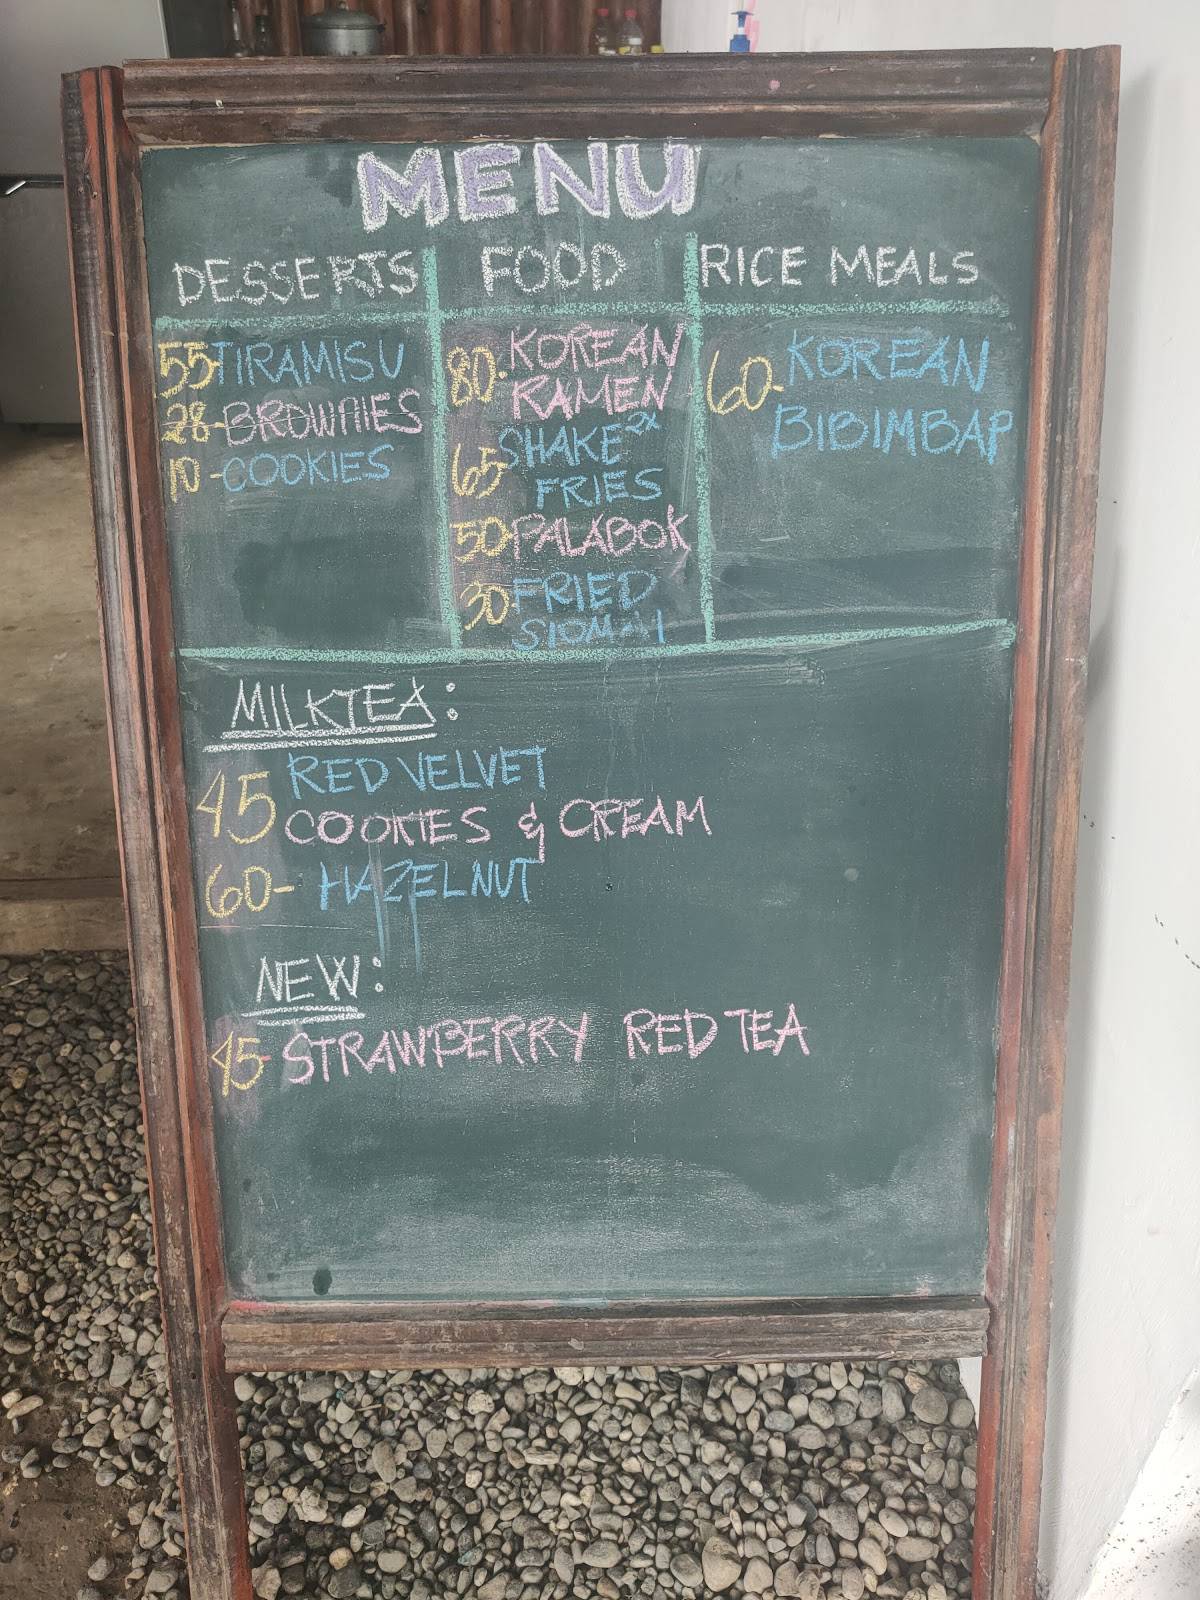 MENU
DESSERTS
55 TIRAMISU
28-BROWNIES
10-COOKIES
FOOD
80-KOREAN
RAMEN
65 SHAKE 2X
FRIES
50-PALABOK
30-FRIED
SIOMAI
RICE MEALS
60-KOREAN
BIBIMBAP
MILKTEA:
45 RED VELVET
COOKIES & CREAM
60- HAZELNUT
NEW:
45-STRAWBERRY RED TEA